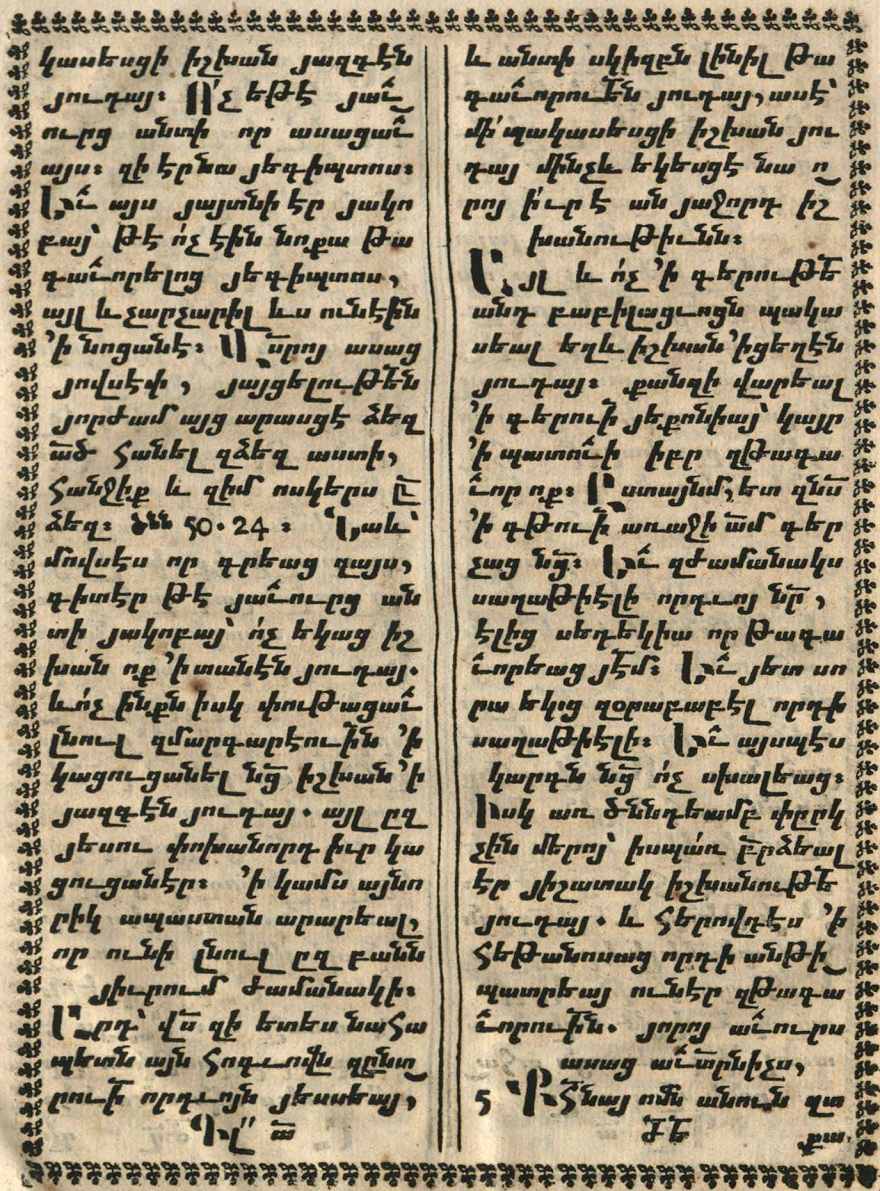 կասեսցի իշխան յազգէն
յուդայ։ Ո՛չ եթէ յա՟ւ
ուրց անտի որ ասացա՟ւ
այս։ զի էրնա յեգիպտոս։
Եւ այս յայտնի էր յակո
բայ՝ թէ ո՛չ էին նոքա թա
գա՟ւորելոց յեգիպտոս,
այլ և չարչարիլ ևս ունէին
՚ի նոցանէ։ Ս՟րոյ ասաց
յովսէփ , յայցելութ՟են
յորժամ այց արասցէ ձեզ
ա՟ծ հանել զձեզ աստի,
հանջիք և զիմ ոսկերս ը՟
ձեզ։ ծնն 50.24 ։ Նաև՝
մովսէս որ գրեաց զայս,
գիտէր թէ յա՟ւուրց ան
տի յակոբայ՝ ո՛չ եկաց իշ
խան ոք ՚ի տանէն յուդայ.
և ո՛չ ինքն իսկ փութացա՟ւ
լնուլ զմարգարէու՟ին ՚ի
կացուցանել նց՟ իշխան ՚ի
յազգէն յուդայ . այլ ըզ
յեսու փոխանորդ իւր կա
ցուցանէր։ ՚ի կամս այնո
րիկ ապաստան արարեալ,
որ ունի լնուլ ըզ բանն
յիւրում ժամանակի։
Արդ՝ վս՟ զի ետես նահա
պետն այն հոգւովն զընտ
րու՟ի որդւոյն յեսսեայ,
Գլ՟ ա՟
և անտի սկիզբն լինիլ թա
գա՟ւորու՟են յուդայ, ասէ՝
մի՛ պակասեսցի իշխան յու
դայ մինչև եկեսցէ նա ո
րոյ ի՛ւր է ան յաջորդ իշ
խանութիւնն։
Այլ և ո՛չ ՚ի գերութ՟ե
անդ բաբիլացւոցն պակա
սեալ եղև իշխան ՚ի ցեղէն
յուդայ։ քանզի վարեալ
՚ի գերու՟ի յեքոնիայ՝ կայր
՚ի պատու՟ի իբր զթագա
՟ւոր ոք։ Ըստայնմ, ետ զնս՟
՚ի գթու՟ի առաջի ա՟մ գեր
չաց նց՟։ Եւ զժամանակս
սաղաթիէլի որդւոյ նր՟ ,
էլից սեդեկիա որ թագա
՟ւորեաց յէմ։ Եւ յետ սո
րա եկից զօրաբաբէլ որդի
սաղաթիէլի։ Եւ այսպէս
կարդն նց՟ ո՛չ սխալեաց։
Իսկ առ ծննդեամբ փըրկ
չին մերոյ՝ իսպառ բ՟րձեալ
էր յիշատակ իշխանութ՟ե
յուդայ . և հերովդէս ՚ի
հեթանոսաց որդի անթի
պատրեայ ունէր զթագա
՟ւորու՟ին. յորոյ ա՟ւուրս
ասաց ա՟ւտրնիչս,
5 Քհ՟նայ ոմն անուն զա
ժե՟
քա